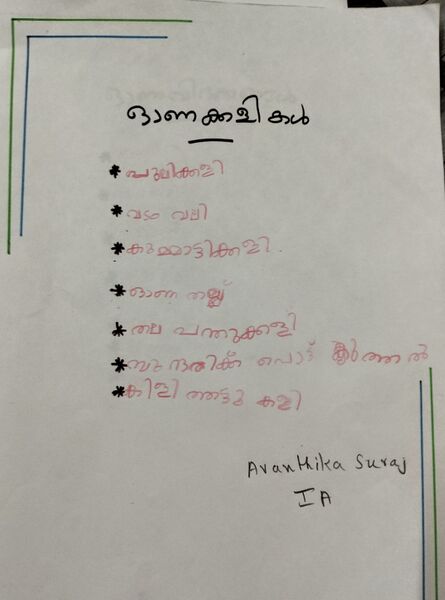 ഓണക്കളികൾ
* പുലിക്കളി
* വടം വലി
* കുമ്മാട്ടിക്കളി
* ഓണ തല്ല്
* തല പന്തുക്കളി
* സുന്ദരിക്ക് പൊട്ട് കുത്തൽ
* കിളി ത്തട്ടു കളി
Avanthika Suraj
I A